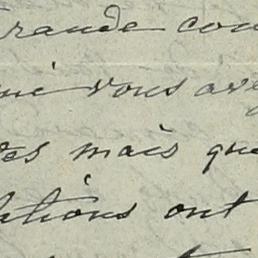 rande con
vous ave
es mais que
lations ont